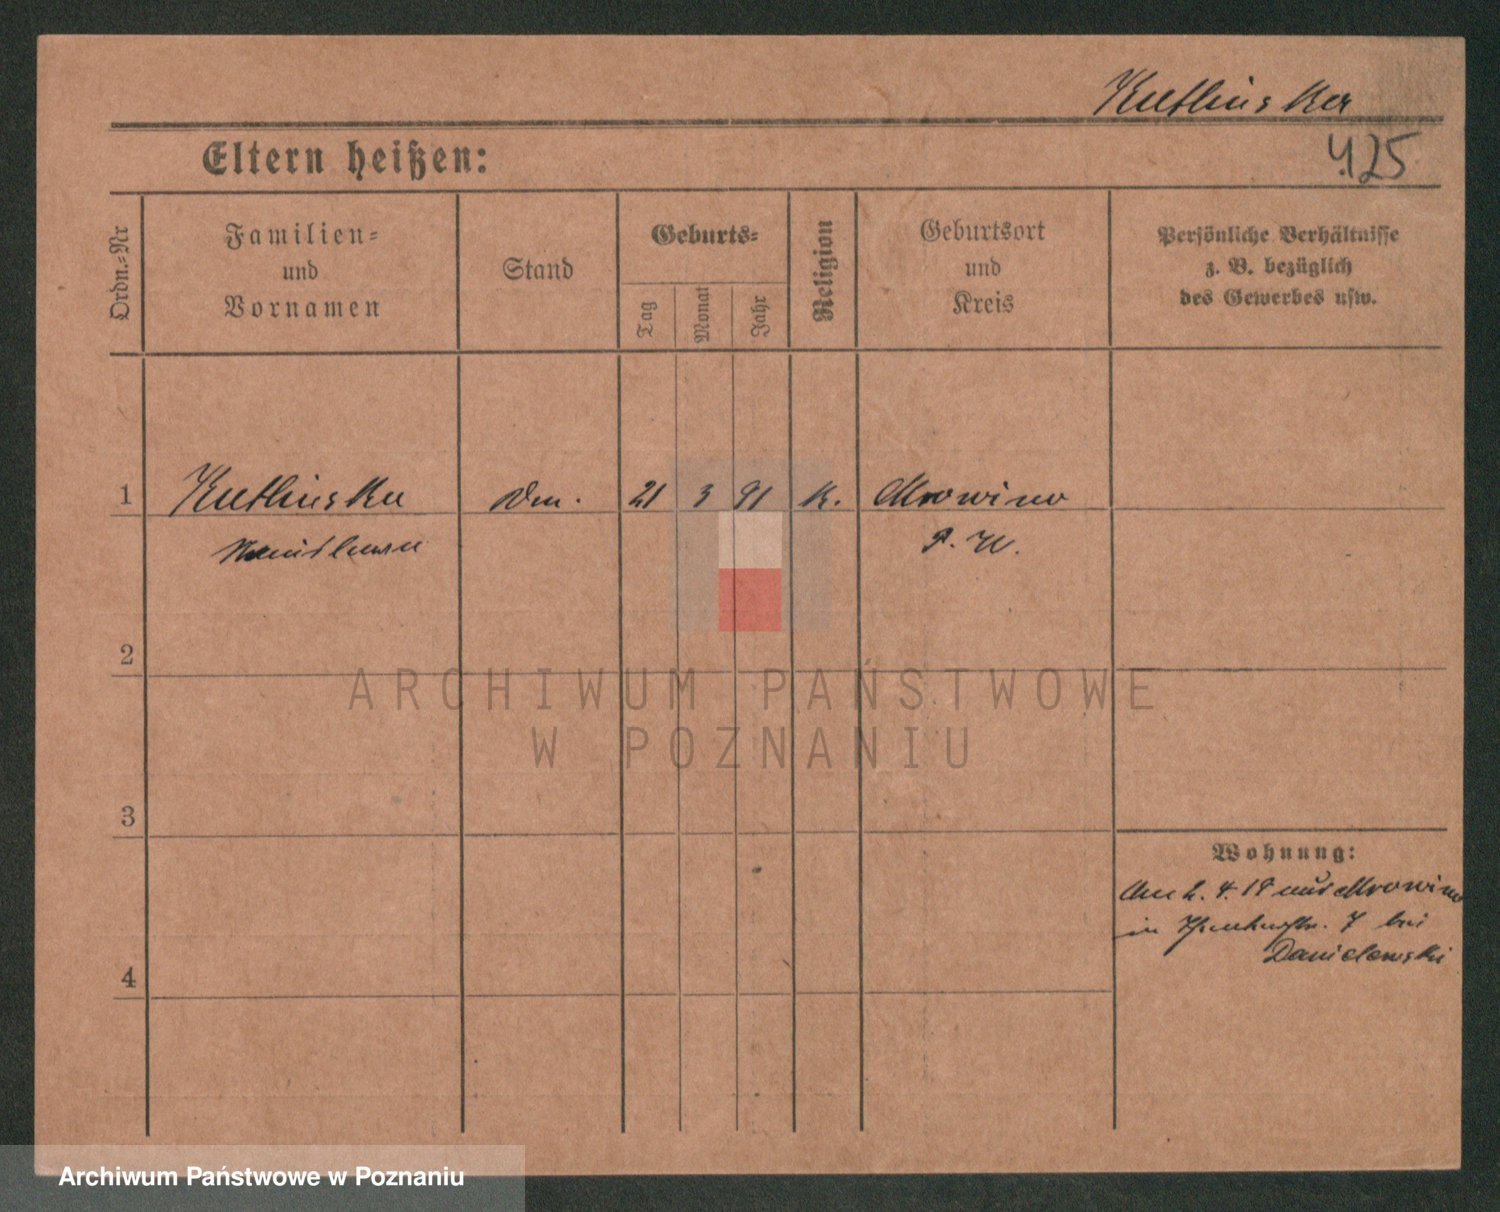 Kutlinska
425
Eltern heißen:
Ordn.-Nr
Familien-
und
Vornamen
Stand
Geburts-
Tag
Monat
Jahr
Religion
Geburtsort
und
Kreis
Persönliche Verhältnisse
z. B. bezüglich
des Gewerbes usw.
1 Kutlinska 21 3 91 K. Mrowino
P. W.
2
ARCHIWUM PAŃSTWOWE
W POZNANIU
3
Wohnung:
Am 2. 4. 19 aus Mrowino
in 7 bei
Danielewski
4
Archiwum Państwowe w Poznaniu